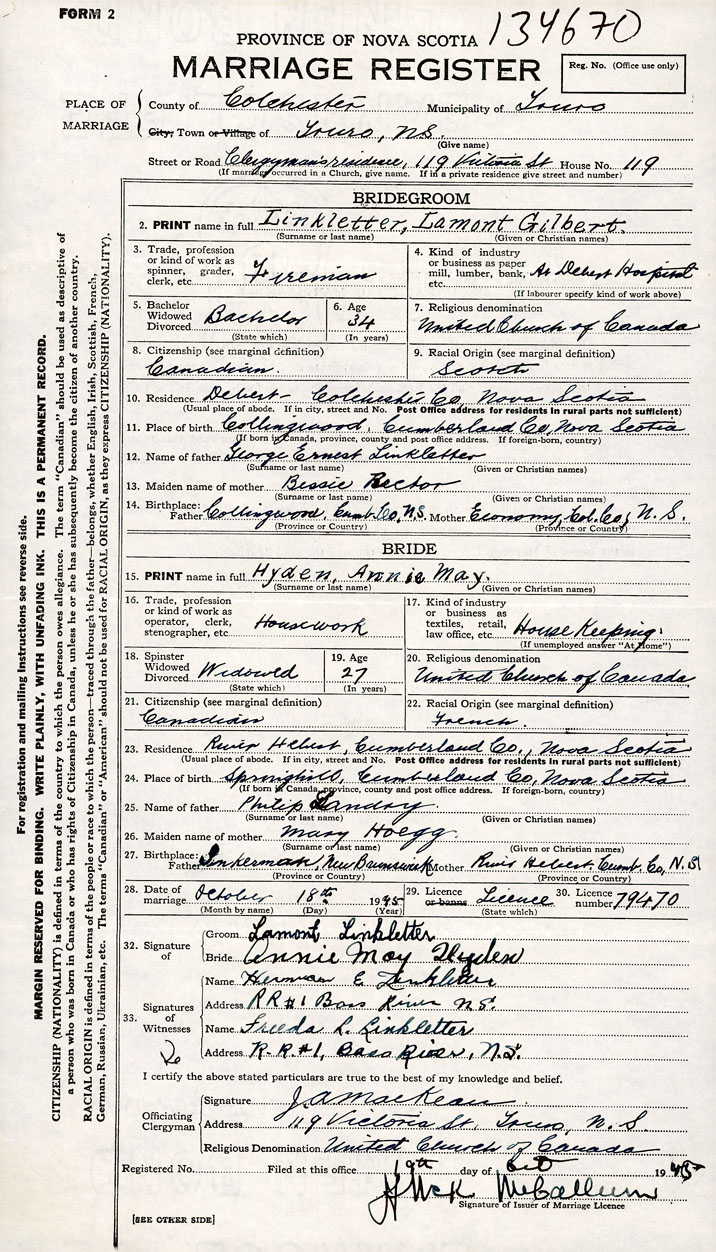 FORM 2
134670
PROVINCE OF NOVA SCOTIA
MARRIAGE REGISTER
Reg. No. (Office use only)
PLACE OF MARRIAGE
County of Colchester Municipality of Truro
City, Town or Village of Truro, N.S.
(Give name)
Street or Road Clergyman's residence, 119 Victoria St House No. 119
(If marriage occurred in a Church, give name. If in a private residence give street and number)
BRIDEGROOM
2. PRINT name in full Linkletter, Lamont Gilbert.
(Surname or last name) (Given or Christian names)
3. Trade, profession or kind of work as spinner, grader, clerk, etc. Fireman
4. Kind of industry or business as paper mill, lumber, bank, etc. At Debert Hospital
(If labourer specify kind of work above)
5. Bachelor Widowed Divorced Bachelor
(State which)
6. Age 34
(In years)
7. Religious denomination
United Church of Canada
8. Citizenship (see marginal definition)
Canadian.
9. Racial Origin (see marginal definition)
Scotch
10. Residence Debert - Colchester Co, Nova Scotia
(Usual place of abode. If in city, street and No. Post Office address for residents in rural parts not sufficient)
11. Place of birth Collingwood, Cumberland Co, Nova Scotia
(If born in Canada, province, county and post office address. If foreign-born, country)
12. Name of father George Ernest Linkletter
(Surname or last name) (Given or Christian names)
13. Maiden name of mother Bessie Rector
(Surname or last name) (Given or Christian names)
14. Birthplace: Father Collingwood, Cumb. Co, N.S. Mother Economy, Col. Co, N.S.
(Province or Country) (Province or Country)
BRIDE
15. PRINT name in full Hyden, Annie May.
(Surname or last name) (Given or Christian names)
16. Trade, profession or kind of work as operator, clerk, stenographer, etc. Housework
17. Kind of industry or business as textiles, retail, law office, etc. House Keeping.
(If unemployed answer "At Home")
18. Spinster Widowed Divorced Widowed
(State which)
19. Age 27
(In years)
20. Religious denomination
United Church of Canada
21. Citizenship (see marginal definition)
Canadian
22. Racial Origin (see marginal definition)
French.
23. Residence River Hebert, Cumberland Co., Nova Scotia
(Usual place of abode. If in city, street and No. Post Office address for residents in rural parts not sufficient)
24. Place of birth Springhill, Cumberland Co, Nova Scotia
(If born in Canada, province, county and post office address. If foreign-born, country)
25. Name of father Philip Landry.
(Surname or last name) (Given or Christian names)
26. Maiden name of mother Mary Hoegg.
(Surname or last name) (Given or Christian names)
27. Birthplace: Father Inkerman, New Brunswick Mother River Hebert, Cumb. Co, N.S
(Province or Country) (Province or Country)
28. Date of marriage October 18th 1945
(Month by name) (Day) (Year)
29. Licence or banns Licence
(State which)
30. Licence number 79470
32. Signature of
Groom Lamont Linkletter
Bride Annie May Hyden
33. Signatures of Witnesses
Name Herman E Linkletter
Address RR#1 Bass River N.S.
Name Freeda L. Linkletter
Address R.R.#1, Bass River, N.S.
I certify the above stated particulars are true to the best of my knowledge and belief.
Officiating Clergyman
Signature J A MacKean
Address 119 Victoria St, Truro, N.S.
Religious Denomination United Church of Canada
Registered No. Filed at this office 19th day of Oct 1945
McCallum
Signature of Issuer of Marriage Licence
[SEE OTHER SIDE]
For registration and mailing instructions see reverse side.
MARGIN RESERVED FOR BINDING. WRITE PLAINLY, WITH UNFADING INK. THIS IS A PERMANENT RECORD.
CITIZENSHIP (NATIONALITY) is defined in terms of the country to which the person owes allegiance. The term "Canadian" should be used as descriptive of
a person who was born in Canada or who has rights of Citizenship in Canada, unless he or she has subsequently become the citizen of another country.
RACIAL ORIGIN is defined in terms of the people or race to which the person—traced through the father—belongs, whether English, Irish, Scottish, French,
German, Russian, Ukrainian, etc. The terms "Canadian" or "American" should not be used for RACIAL ORIGIN, as they express CITIZENSHIP (NATIONALITY).